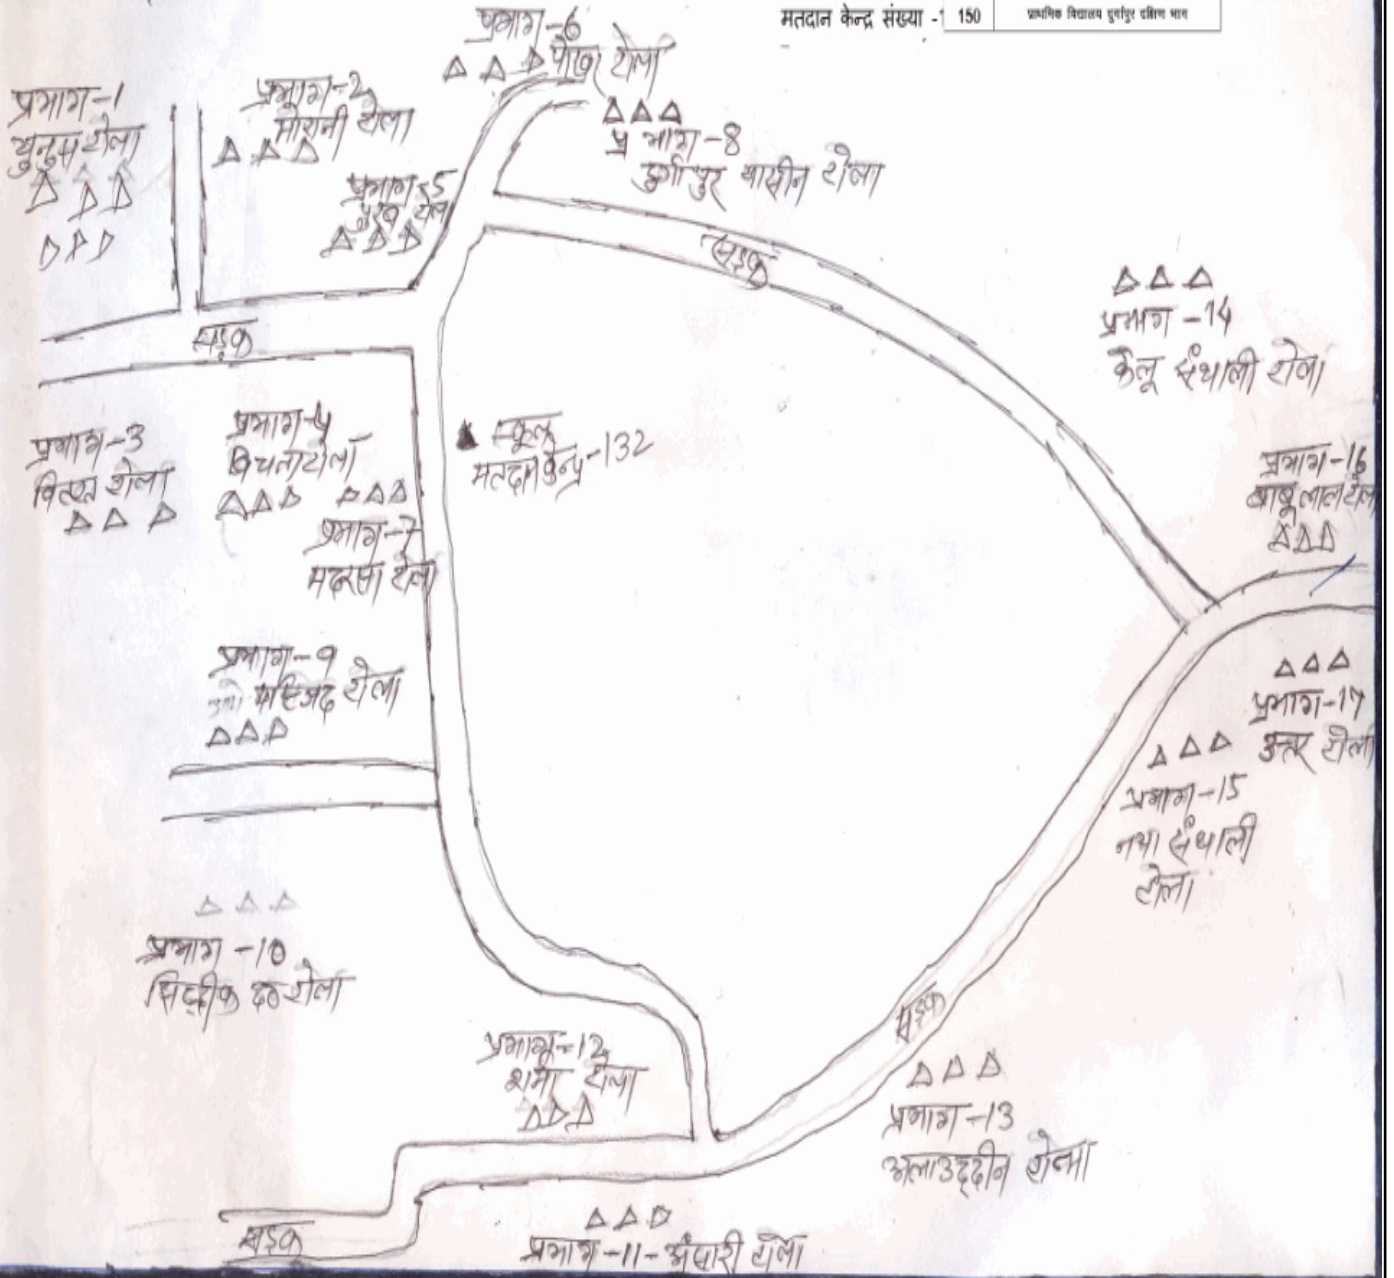 मतदान केन्द्र संख्या - 150 प्राथमिक विद्यालय दुर्गापुर दक्षिण भाग
प्रभाग-6
पोखर टोला
प्रभाग-1
युनुस टोला
प्रभाग-2
मोरानी टोला
प्रभाग-5
टोला
प्रभाग-8
दुर्गापुर यासीन टोला
सड़क
प्रभाग-14
केलू संथाली टोला
सड़क
प्रभाग-3
टोला
प्रभाग-4
बिचलाटोला
स्कूल
मतदान केन्द्र-132
प्रभाग-16
बाबूलाल टोला
प्रभाग-7
मदरसा टोला
प्रभाग-9
मस्जिद टोला
प्रभाग-17
उत्तर टोला
प्रभाग-15
नया संथाली
टोला
प्रभाग-10
सिद्दीक टोला
सड़क
प्रभाग-12
शर्मा टोला
प्रभाग-13
अलाउद्दीन टोला
सड़क
प्रभाग-11-अंसारी टोला